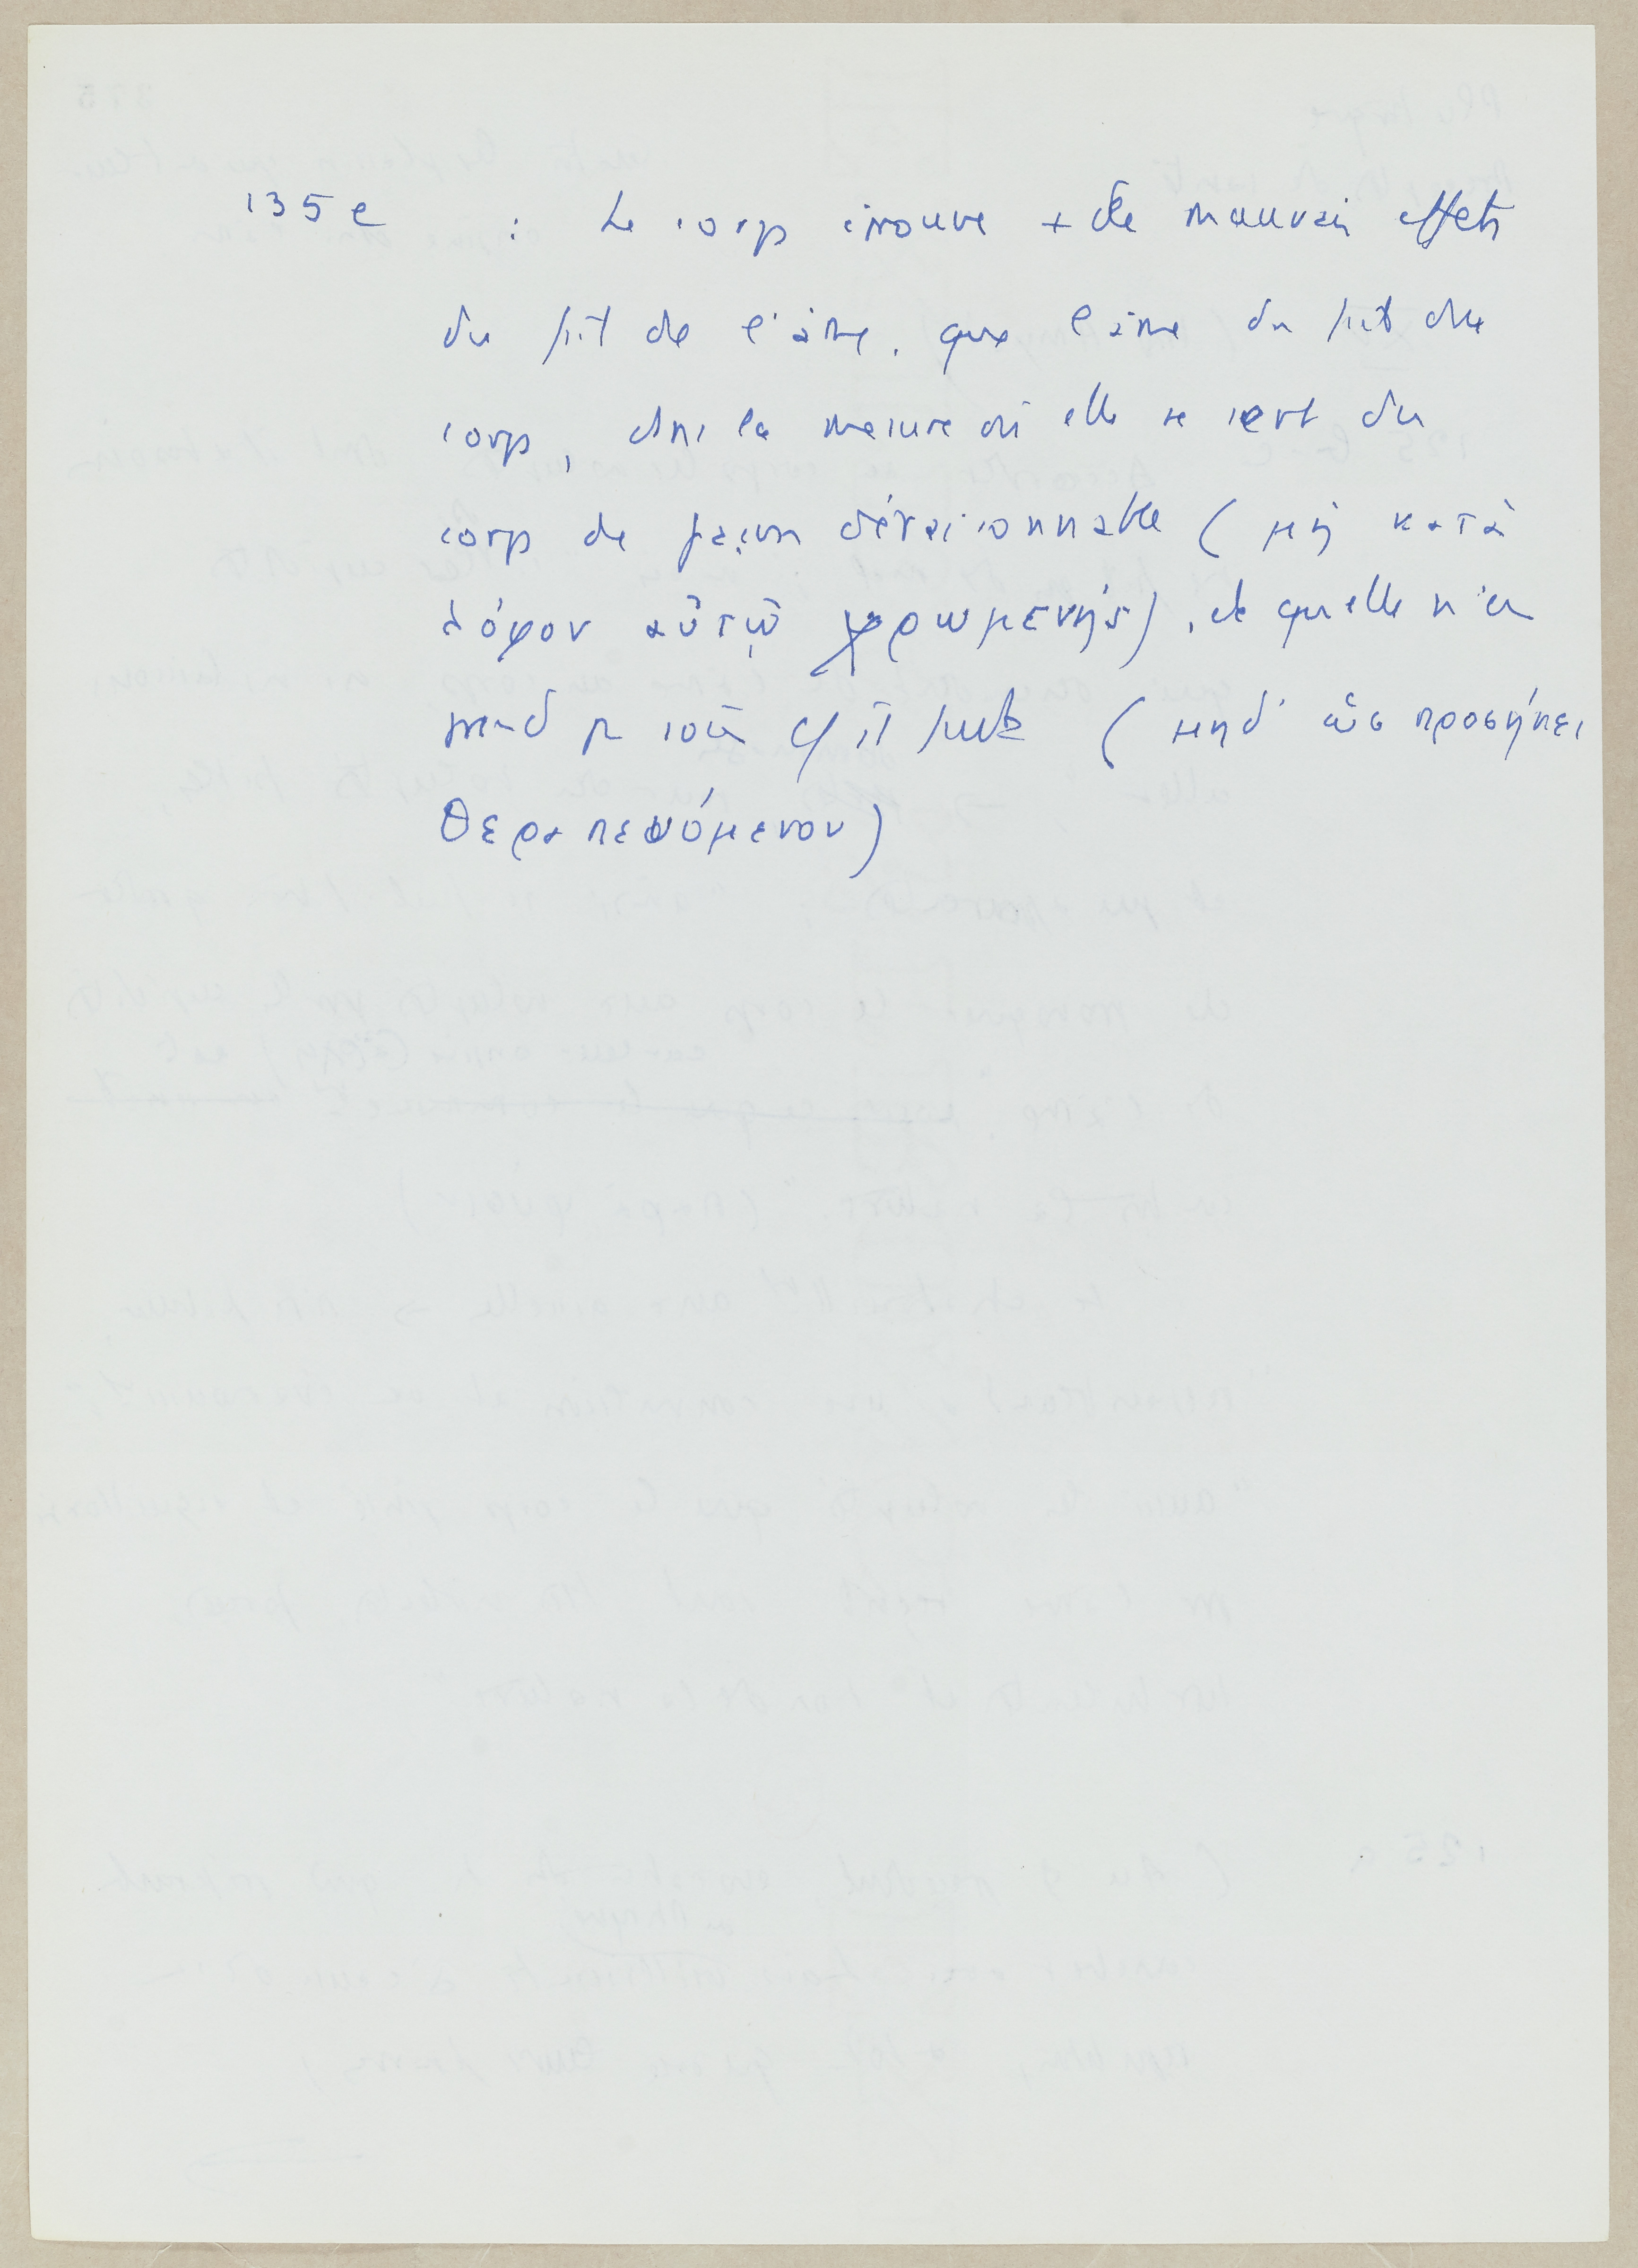 135 e : Le corps éprouve + de mauvais effets
du fait de l'âme, que l'âme du fait du
corps, dans la mesure où elle se sert du
corps de façon déraisonnable (μὴ κατὰ
λόγον αὐτῷ χρωμένης), et qu'elle n'en
prend p soin c/ il faut (μηδ' ὡς προσήκει
θεραπευόμενον)